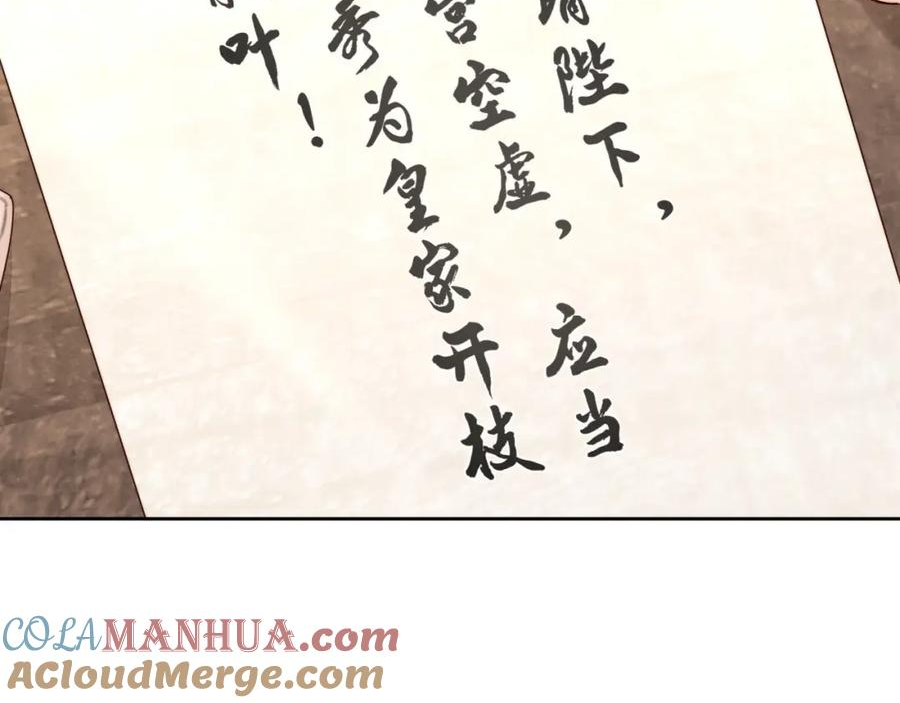 陛下，
宫空虚，应当
秀为皇家开枝
叶！
COLAMANHUA.com
ACloudMerge.com